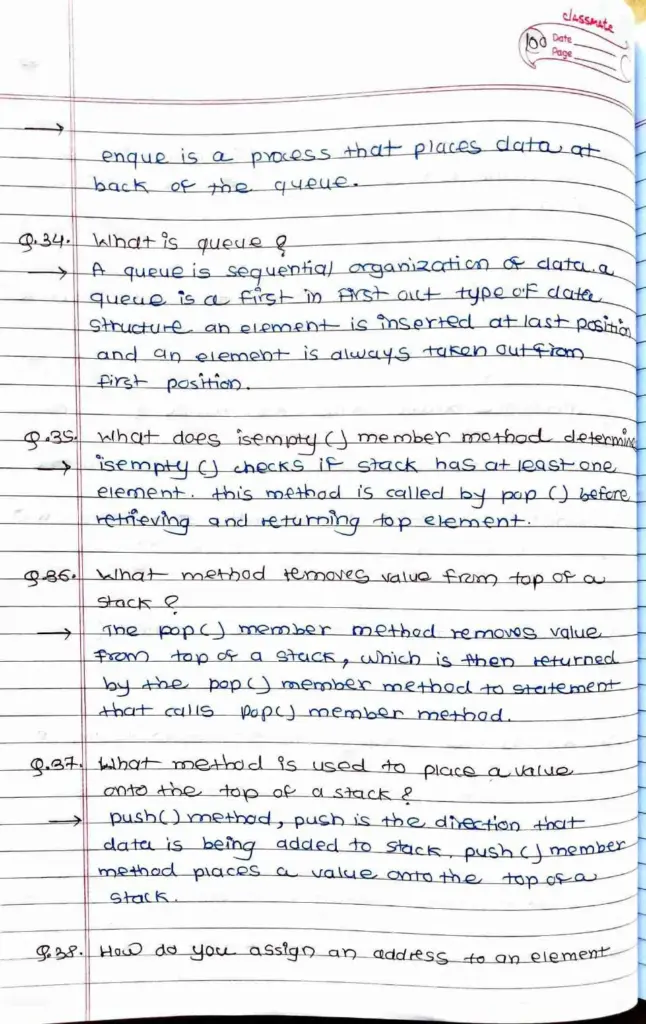 classmate
Date
100
Page
→
enque is a process that places data at
back of the queue.
Q.34. What is queue ?
→ A queue is sequential organization of data. a
queue is a first in first out type of data
structure an element is inserted at last position
and an element is always taken out from
first position.
Q.35. What does isempty () member method determine
→ isempty () checks if stack has at least one
element. this method is called by pop () before
retrieving and returning top element.
Q.36. What method removes value from top of a
stack ?
→ The pop() member method removes value
from top of a stack, which is then returned
by the pop() member method to statement
that calls pop() member method.
Q.37. What method is used to place a value
onto the top of a stack ?
→ push() method, push is the direction that
data is being added to stack. push () member
method places a value onto the top of a
stack.
Q.38. How do you assign an address to an element